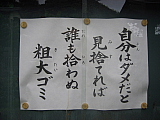 自分はダメだと
見捨てれば
誰も拾わぬ
粗大ゴミ